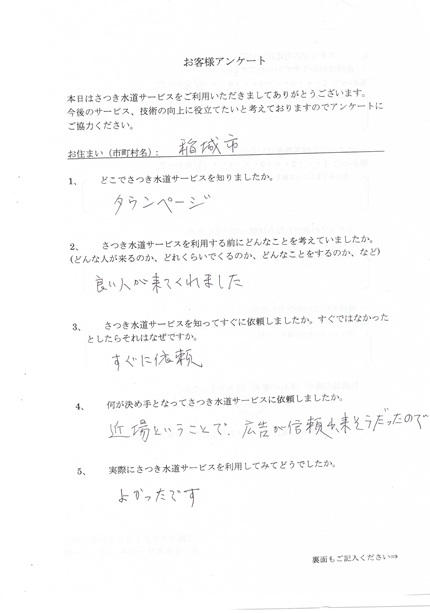 お客様アンケート
本日はさつき水道サービスをご利用いただきましてありがとうございます。
今後のサービス、技術の向上に役立てたいと考えておりますのでアンケートに
ご協力ください。
お住まい（市町村名）： 稲城市
1、 どこでさつき水道サービスを知りましたか。
タウンページ
2、 さつき水道サービスを利用する前にどんなことを考えていましたか。
(どんな人が来るのか、どれくらいでくるのか、どんなことをするのか、など)
良い人が来てくれました
3、 さつき水道サービスを知ってすぐに依頼しましたか。すぐではなかった
としたらそれはなぜですか。
すぐに依頼
4、 何が決め手となってさつき水道サービスに依頼しましたか。
近場ということで、広告が信頼出来そうだったので
5、 実際にさつき水道サービスを利用してみてどうでしたか。
よかったです
裏面もご記入ください⇒